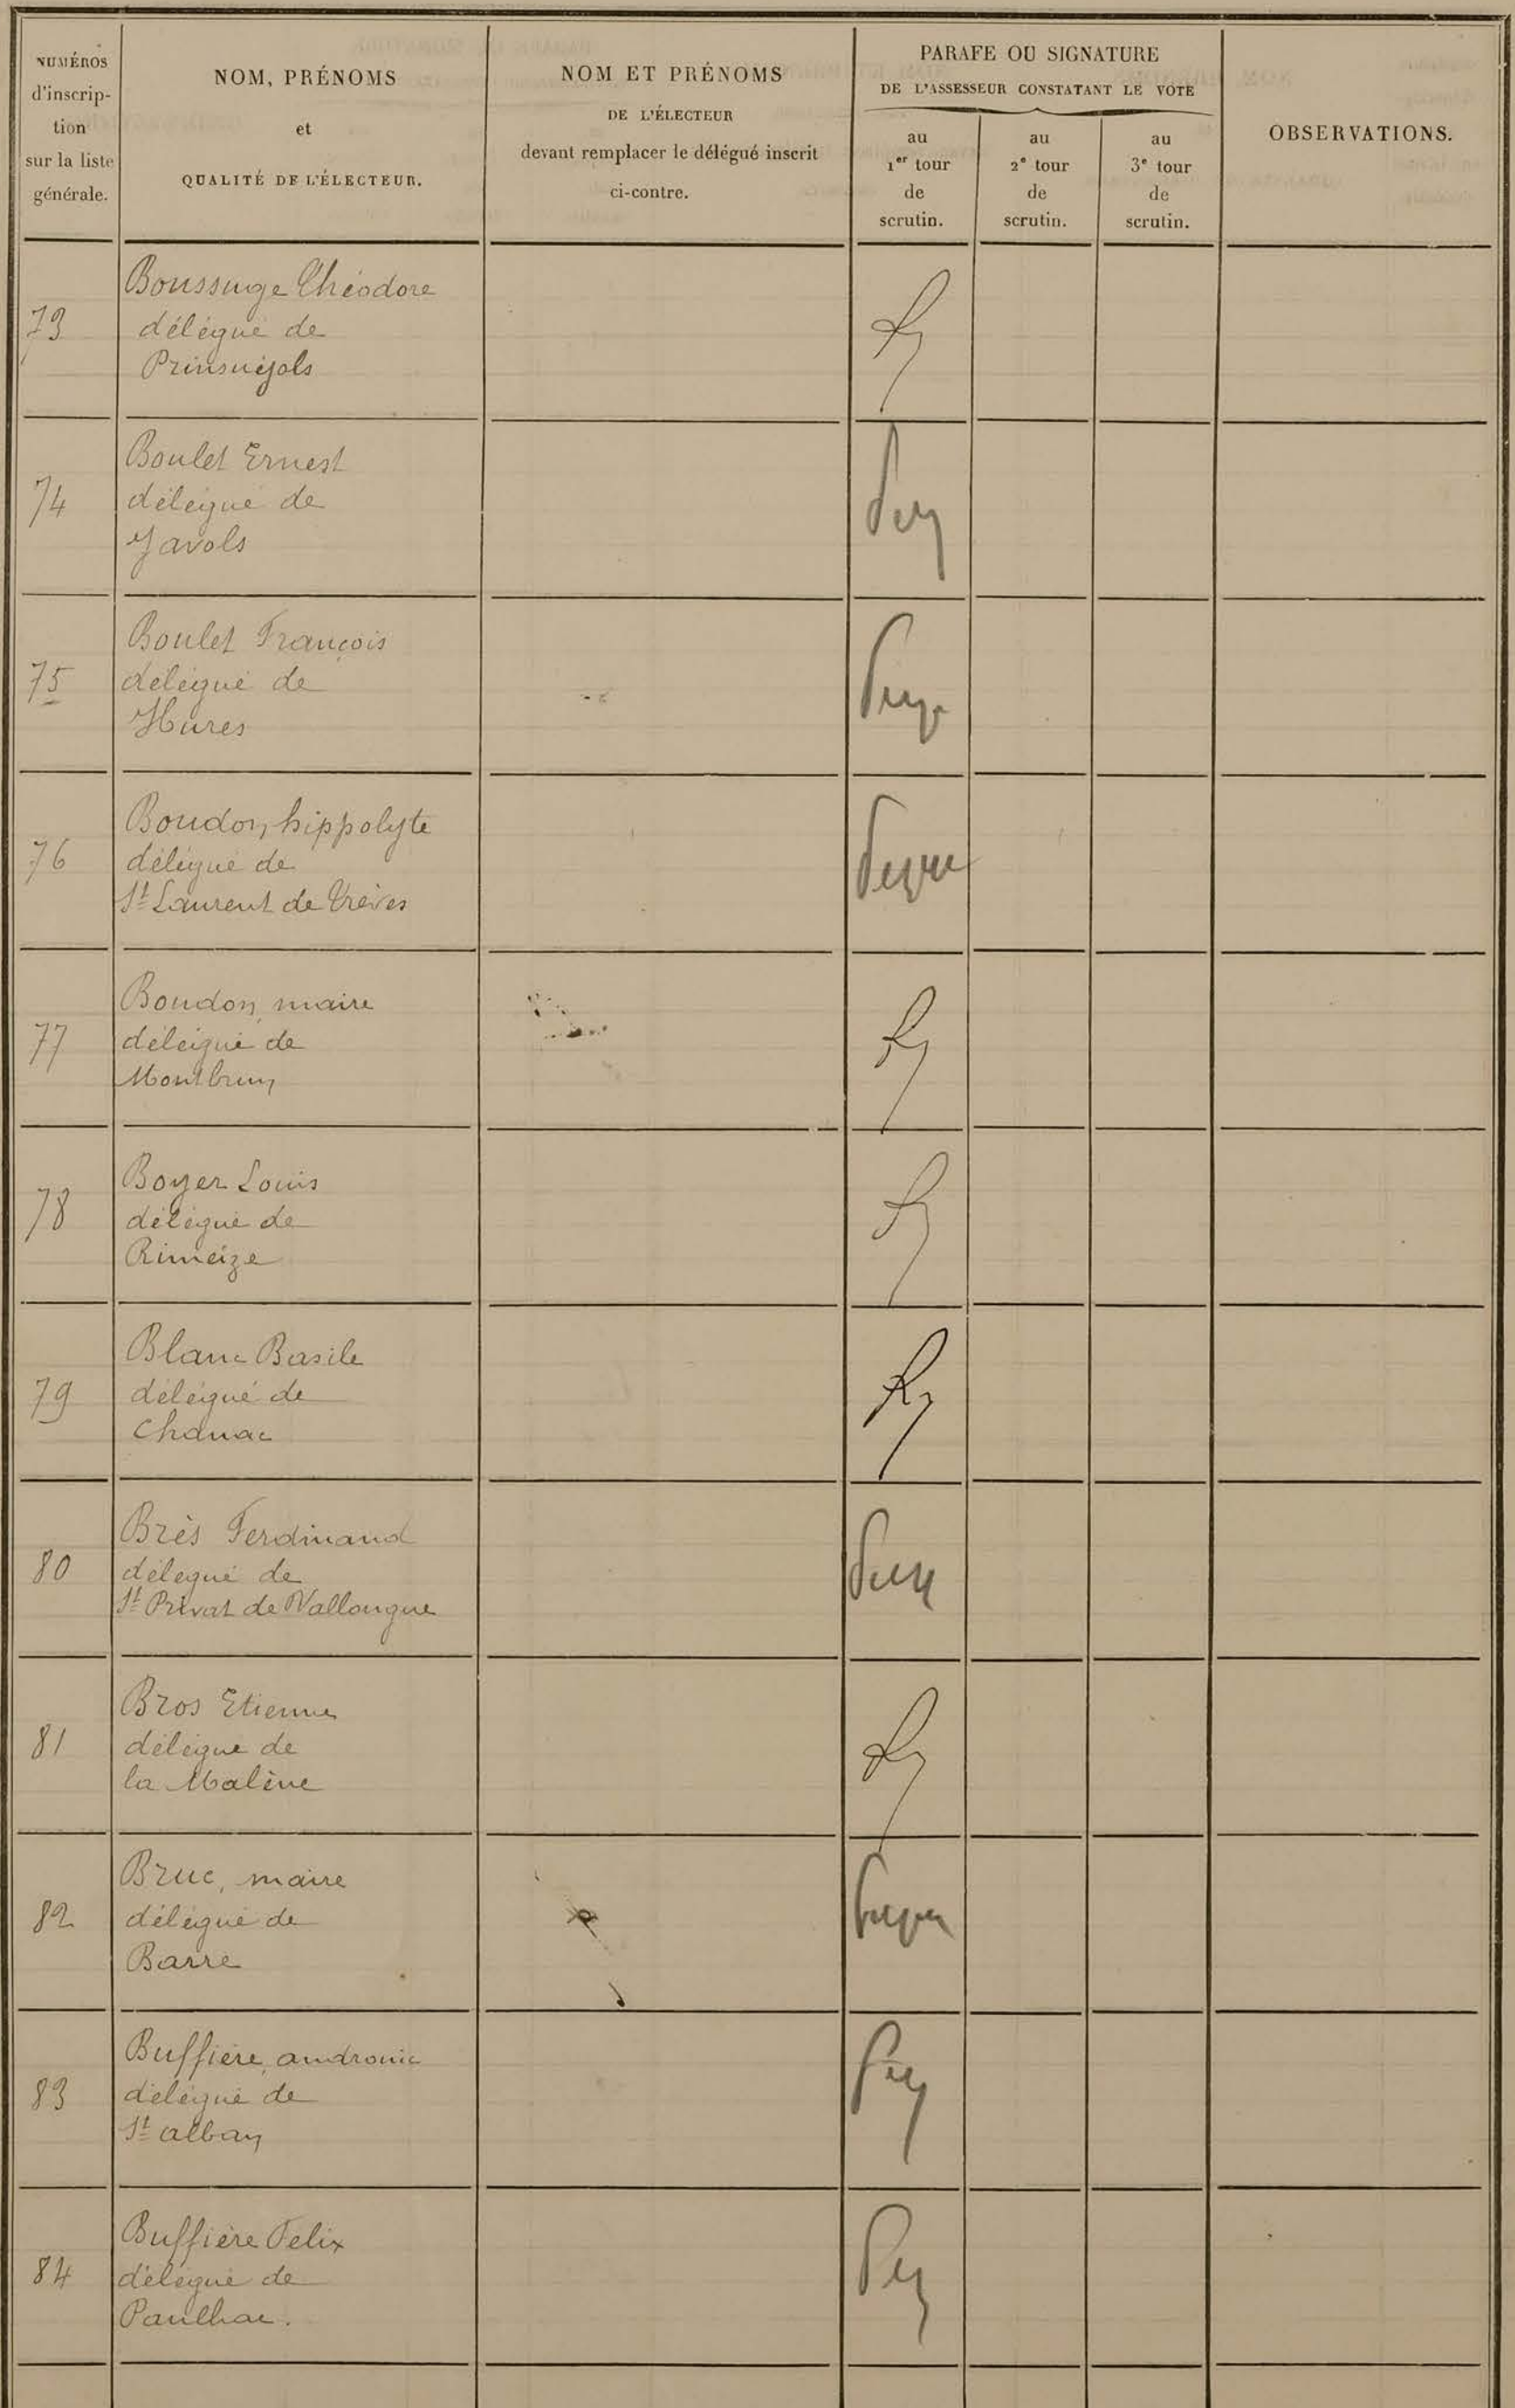 NUMÉROS
d'inscrip-
tion
sur la liste
générale.
NOM, PRÉNOMS
et
QUALITÉ DE L'ÉLECTEUR.
NOM ET PRÉNOMS
DE L'ÉLECTEUR
devant remplacer le délégué inscrit
ci-contre.
PARAFE OU SIGNATURE
DE L'ASSESSEUR CONSTATANT LE VOTE
au
1er tour
de
scrutin.
au
2e tour
de
scrutin.
au
3e tour
de
scrutin.
OBSERVATIONS.
73
Boussuge Théodore
délégué de
Prinsuéjols
74
Boulet Ernest
délégué de
Javols
75
Boulet François
délégué de
Hures
76
Boudon, hippolyte
délégué de
St Laurent de Trèves
77
Boudon, maire
délégué de
Montbrun
78
Boyer Louis
délégué de
Rimeize
79
Blanc Basile
délégué de
Chanac
80
Brès Ferdinand
délégué de
St Privat de Vallongue
81
Bros Etienne
délégue de
la Malène
82
Bruc, maire
délégué de
Barre
83
Buffière, andronic
délégué de
St alban
84
Buffière Felix
délégué de
Paulhac.